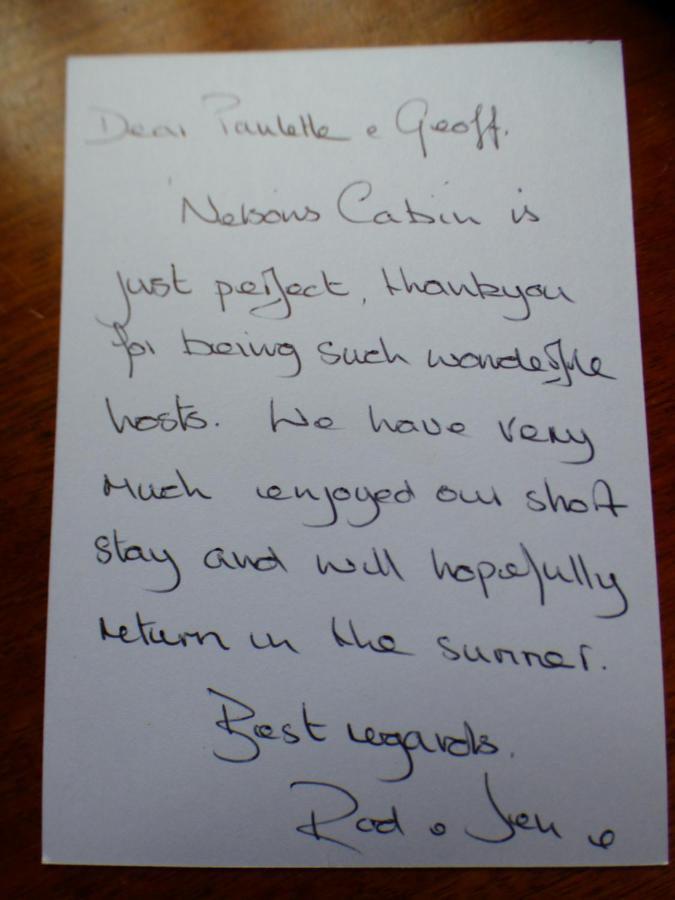 Dear Paulette & Geoff.
Nelsons Cabin is
just perfect, thankyou
for being such wonderful
hosts. We have very
much enjoyed our short
stay and will hopefully
return in the summer.
Best regards.
Rod & Jen